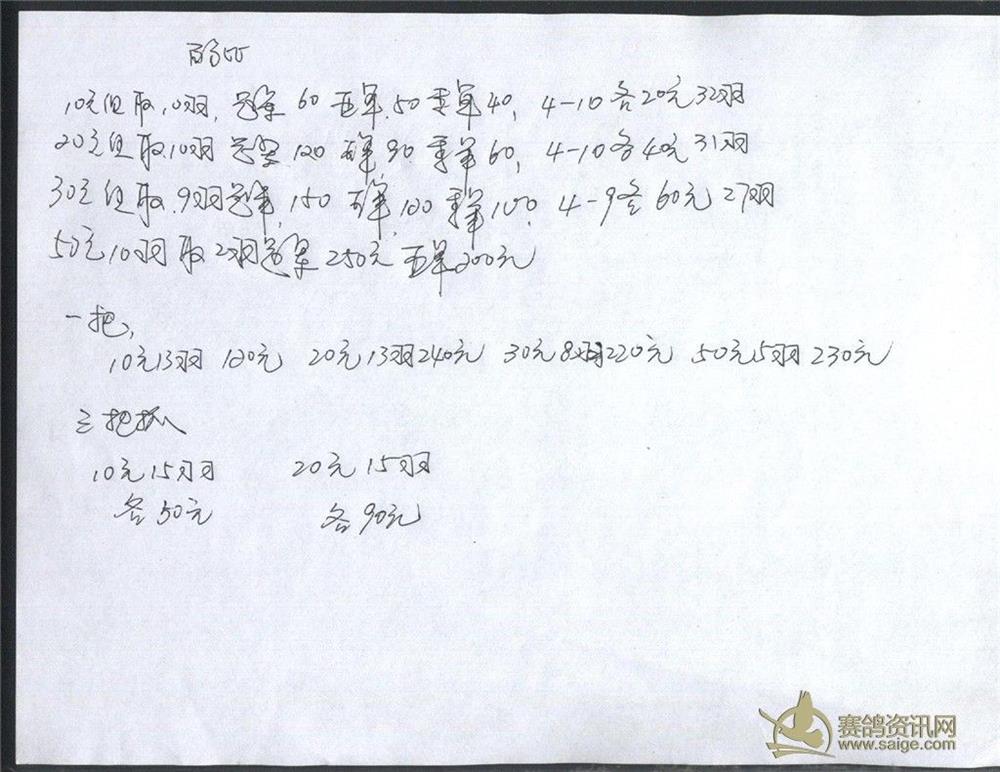 10元组取10羽,冠军60亚军50季军40,4-10各20元32羽
20元组取10羽冠军120亚军90季军60,4-10各40元31羽
30元组取9羽冠军150亚军100季军100,4-9各60元27羽
50元10羽取2羽冠军250元亚军200元
一把,
10元13羽 120元 20元13羽240元 30元8羽220元 50元5羽230元
三把抓
10元15羽 20元15羽
各50元 各90元
赛鸽资讯网
www.saige.com